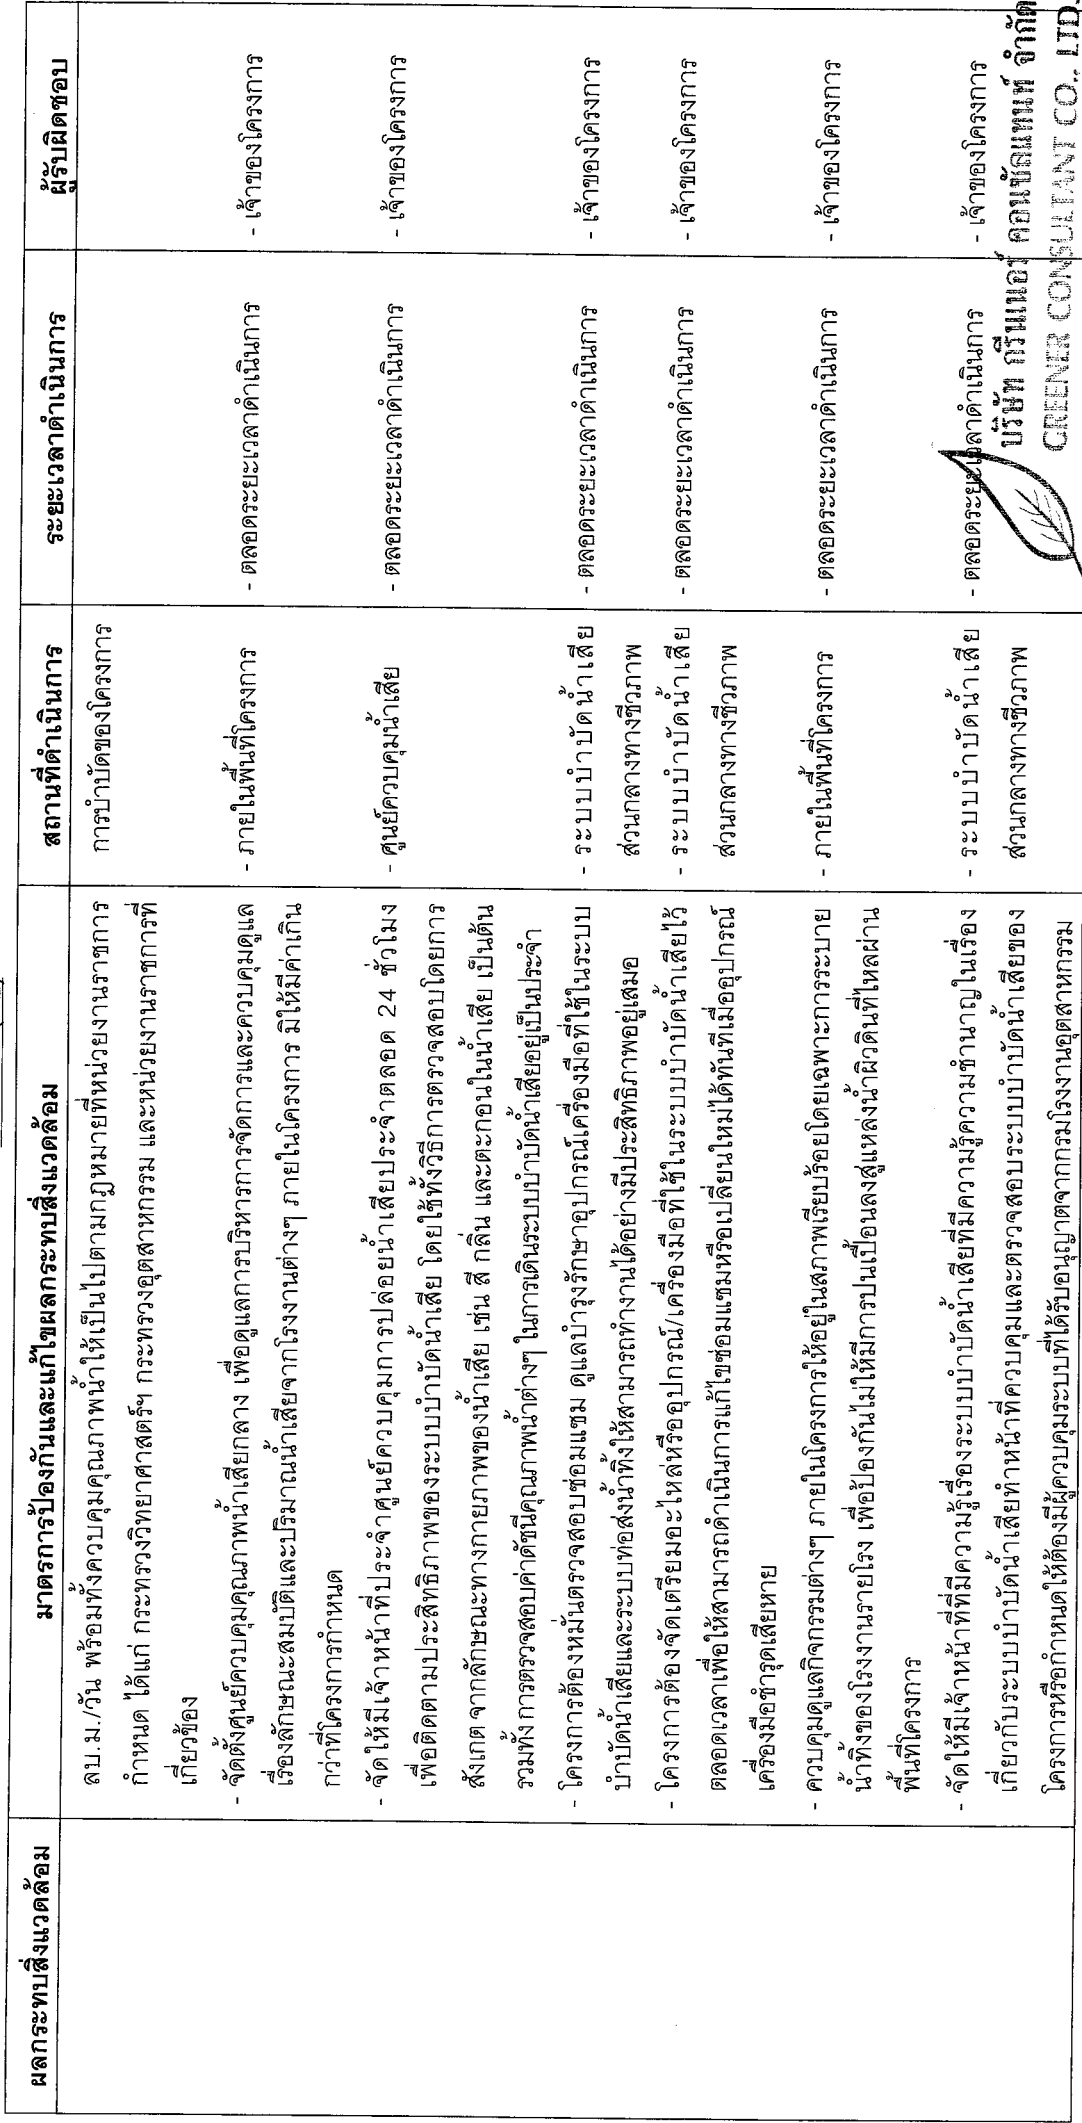 ผลกระทบสิ่งแวดล้อม
มาตรการป้องกันและแก้ไขผลกระทบสิ่งแวดล้อม
สถานที่ดำเนินการ
ระยะเวลาดำเนินการ
ผู้รับผิดชอบ
ลบ.ม./วัน พร้อมทั้งควบคุมคุณภาพน้ำให้เป็นไปตามกฎหมายที่หน่วยงานราชการ
กำหนด ได้แก่ กระทรวงวิทยาศาสตร์ฯ กระทรวงอุตสาหกรรม และหน่วยงานราชการที่
เกี่ยวข้อง
การบำบัดของโครงการ
- จัดตั้งศูนย์ควบคุมคุณภาพน้ำเสียกลาง เพื่อดูแลการบริหารการจัดการและควบคุมดูแล
เรื่องลักษณะสมบัติและปริมาณน้ำเสียจากโรงงานต่างๆ ภายในโครงการ มิให้มีค่าเกิน
กว่าที่โครงการกำหนด
- ภายในพื้นที่โครงการ
- ตลอดระยะเวลาดำเนินการ
- เจ้าของโครงการ
- จัดให้มีเจ้าหน้าที่ประจำศูนย์ควบคุมการปล่อยน้ำเสียประจำตลอด 24 ชั่วโมง
เพื่อติดตามประสิทธิภาพของระบบบำบัดน้ำเสีย โดยใช้ทั้งวิธีการตรวจสอบโดยการ
สังเกต จากลักษณะทางกายภาพของน้ำเสีย เช่น สี กลิ่น และตะกอนในน้ำเสีย เป็นต้น
รวมทั้ง การตรวจสอบค่าดัชนีคุณภาพน้ำต่างๆ ในการเดินระบบบำบัดน้ำเสียอยู่เป็นประจำ
- ศูนย์ควบคุมน้ำเสีย
- ตลอดระยะเวลาดำเนินการ
- เจ้าของโครงการ
- โครงการต้องหมั่นตรวจสอบซ่อมแซม ดูแลบำรุงรักษาอุปกรณ์เครื่องมือที่ใช้ในระบบ
บำบัดน้ำเสียและระบบท่อส่งน้ำทิ้งให้สามารถทำงานได้อย่างมีประสิทธิภาพอยู่เสมอ
- ระบบบำบัดน้ำเสีย
ส่วนกลางทางชีวภาพ
- ตลอดระยะเวลาดำเนินการ
- เจ้าของโครงการ
- โครงการต้องจัดเตรียมอะไหล่หรืออุปกรณ์/เครื่องมือที่ใช้ในระบบบำบัดน้ำเสียไว้
ตลอดเวลาเพื่อให้สามารถดำเนินการแก้ไขซ่อมแซมหรือเปลี่ยนใหม่ได้ทันทีเมื่ออุปกรณ์
เครื่องมือชำรุดเสียหาย
- ระบบบำบัดน้ำเสีย
ส่วนกลางทางชีวภาพ
- ตลอดระยะเวลาดำเนินการ
- เจ้าของโครงการ
- ควบคุมดูแลกิจกรรมต่างๆ ภายในโครงการให้อยู่ในสภาพเรียบร้อยโดยเฉพาะการระบาย
น้ำทิ้งของโรงงานรายโรง เพื่อป้องกันไม่ให้มีการปนเปื้อนลงสู่แหล่งน้ำผิวดินที่ไหลผ่าน
พื้นที่โครงการ
- ภายในพื้นที่โครงการ
- ตลอดระยะเวลาดำเนินการ
- เจ้าของโครงการ
- จัดให้มีเจ้าหน้าที่ที่มีความรู้เรื่องระบบบำบัดน้ำเสียที่มีความรู้ความชำนาญในเรื่อง
เกี่ยวกับระบบบำบัดน้ำเสียทำหน้าที่ควบคุมและตรวจสอบระบบบำบัดน้ำเสียของ
โครงการหรือกำหนดให้ต้องมีผู้ควบคุมระบบที่ได้รับอนุญาตจากกรมโรงงานอุตสาหกรรม
- ระบบบำบัดน้ำเสีย
ส่วนกลางทางชีวภาพ
- ตลอดระยะเวลาดำเนินการ
- เจ้าของโครงการ
บริษัท กรีนเนอร์ คอนซัลแทนท์ จำกัด
GREENER CONSULTANT CO., LTD.